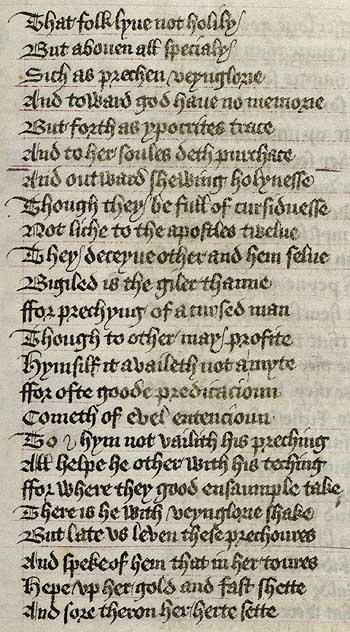 That folk lyue not holily /
But abouen all specialy /
Sich as prechen / veynglorie
And toward god haue no memorie
But forth as ypocrites trace
And to her soules deth purchace
And outward shewing holynesse
Though they / be full of cursidnesse
Not liche to the apostles twelue
They / deceyue other and hem selue
Bigiled is the giler thanne
ffor prechyng of a cursed man
Though to other may / profite
Hymsilf it availeth not a myte
ffor ofte goode predicacioun
Cometh of evel entencioun
To hym not vailith his preching
All helpe he other with his teching
ffor where they good ensaumple take
There is he with / veynglorie shake
But late vs leven these prechoures
And speke of hem that in her toures
Hepe / vp her gold and fast shette
And sore theron her herte sette